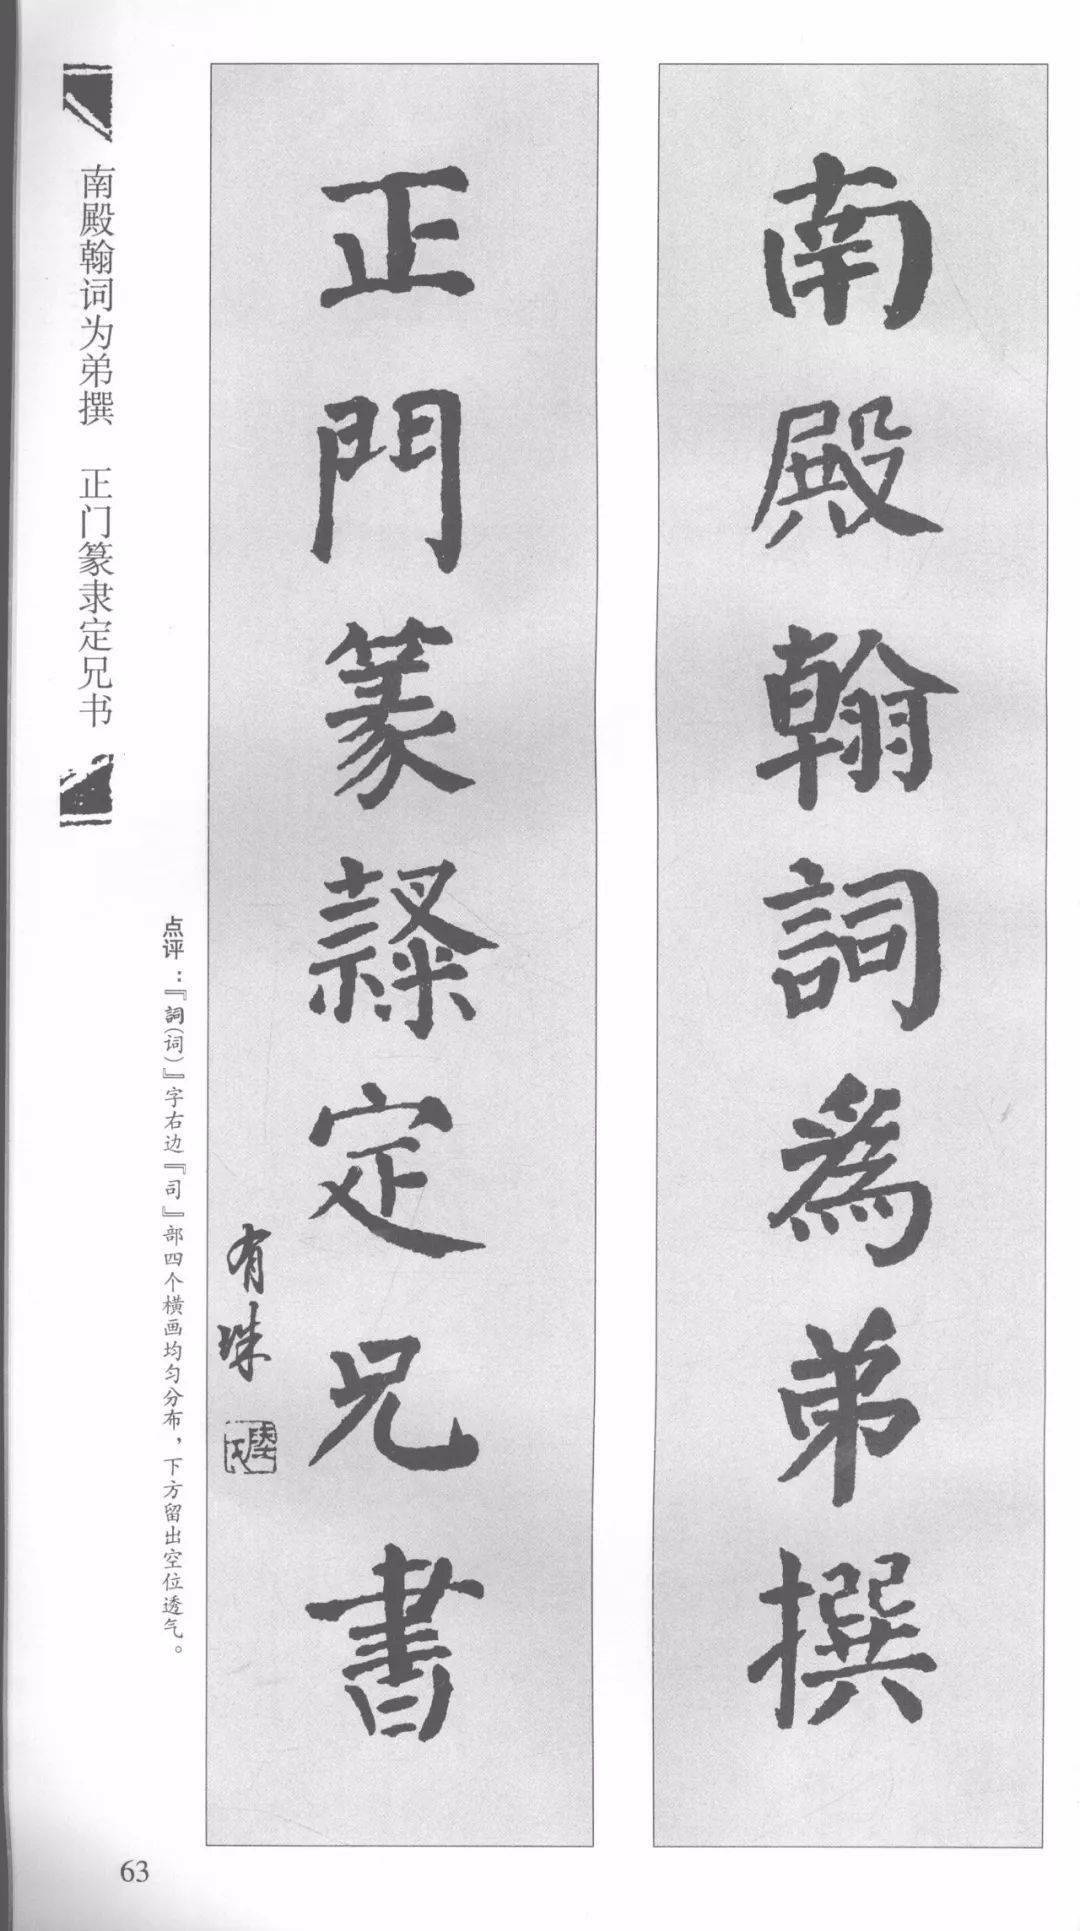 南殿翰詞為弟撰
正門篆隸定兄書
有珠
南殿翰词为弟撰 正门篆隶定兄书
点评：『詞(词)』字右边『司』部四个横画均匀分布，下方留出空位透气。
63